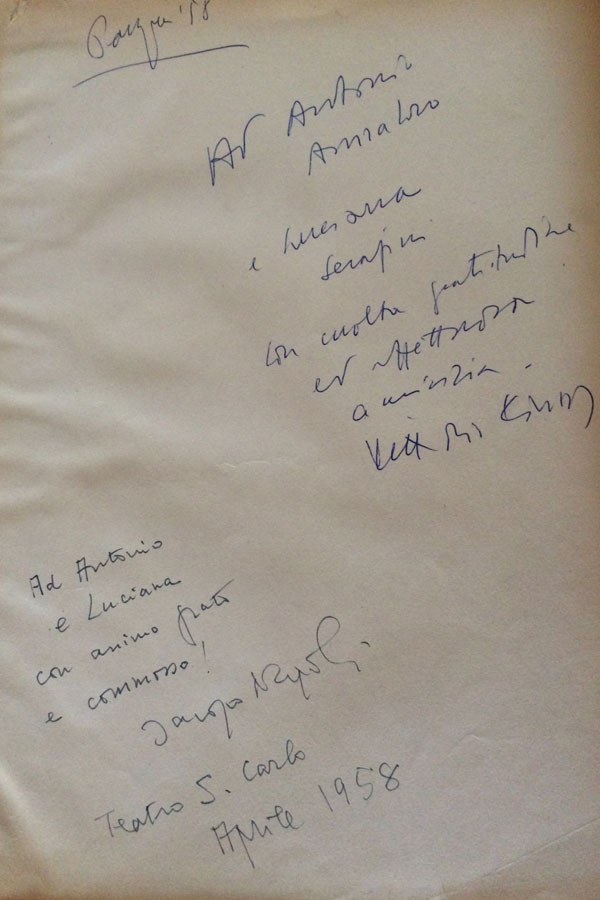 Pasqua '58
Ad Antonio
Annaloro
e Luciana
Serafini
con molta gratitudine
ed affettuosa
amicizia.
Vittorio Viviani
Ad Antonio
e Luciana
con animo grato
e commosso!
Jacopo Napoli
Teatro S. Carlo
Aprile 1958